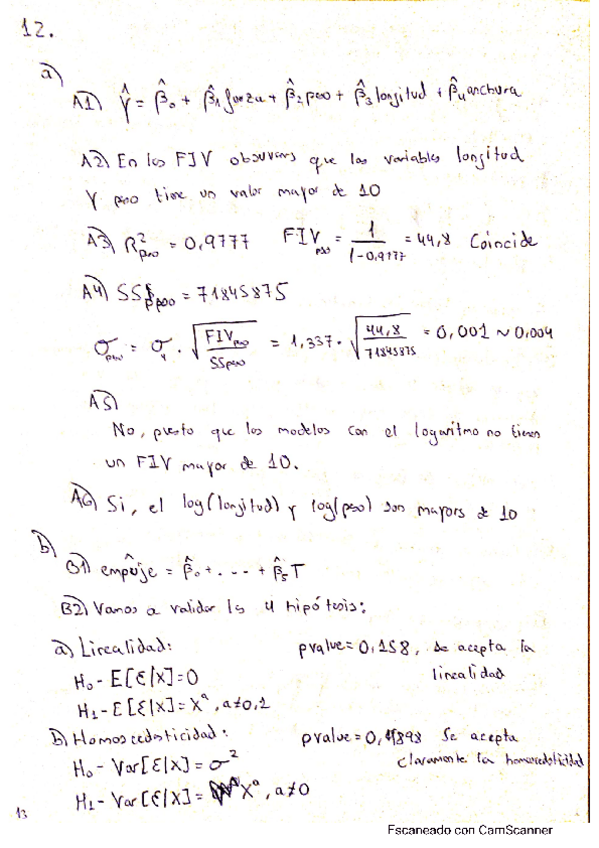 12.
a)
A1) Ŷ = β̂₀ + β̂₁ fuerza + β̂₂ peso + β̂₃ longitud + β̂₄ anchura
A2) En los FIV observamos que las variables longitud
y peso tiene un valor mayor de 10
A3) R²peso = 0,9777 FIVpeso = 1/(1-0,9777) = 44,8 Coincide
A4) SSpeso = 71845875
σpeso = σy · √(FIVpeso/SSpeso) = 1,337 · √(44,8/71845875) = 0,001 ~ 0,004
A5)
No, puesto que los modelos con el logaritmo no tienen
un FIV mayor de 10.
A6) Si, el log(longitud) y log(peso) son mayors de 10
b)
B1) empujê = β̂₀ + . - - + β̂₅T
B2) Vamos a validar las 4 hipótesis:
a) Linealidad: pvalue = 0,158, se acepta la
H₀ - E[ε|x] = 0 linealidad
H₁ - E[ε|x] = Xᵃ, a≠0,1
b) Homoscedasticidad: pvalue = 0,4898 Se acepta
H₀ - Var[ε|x] = σ² claramente la homocedasticidad
H₁ - Var[ε|x] = Xᵃ, a≠0
13
Escaneado con CamScanner